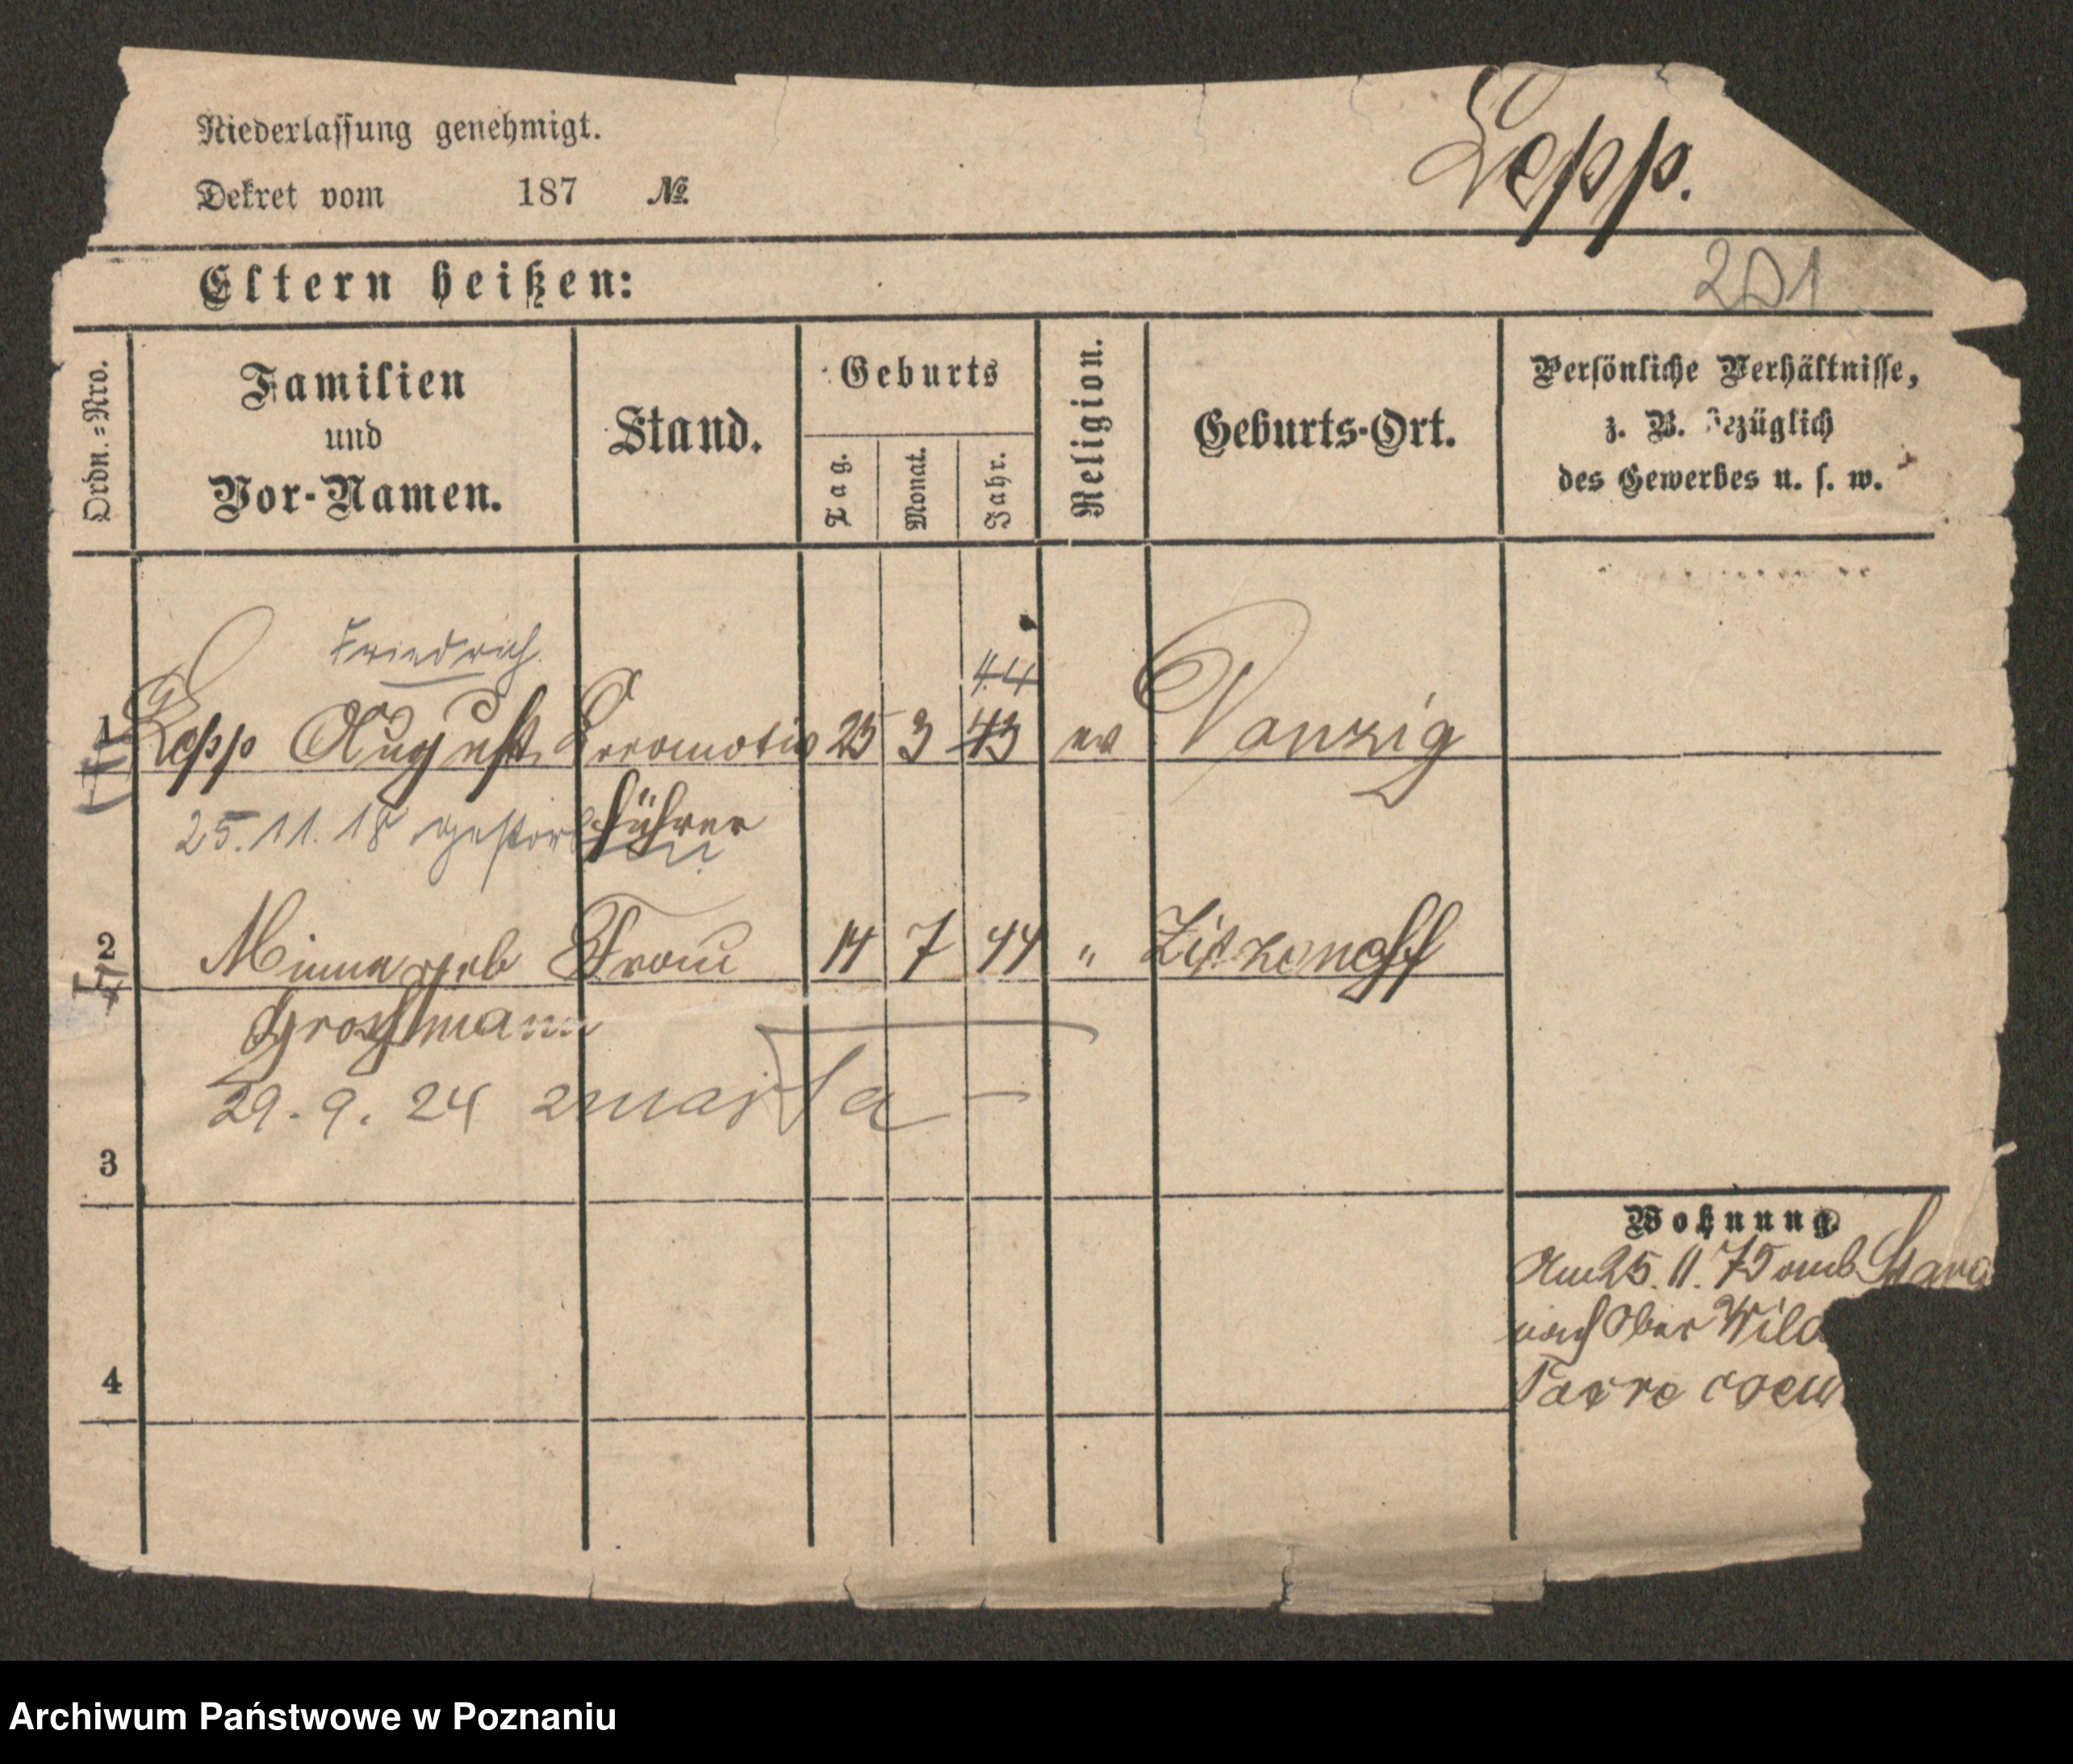 Niederlassung genehmigt.
Dekret vom 187 №
Lepp.
Eltern heißen:
201
Ordn.=Nro.
Familien
und
Vor-Namen.
Stand.
Geburts
Tag.
Monat.
Jahr.
Religion.
Geburts-Ort.
Persönliche Verhältnisse,
z. B. bezüglich
des Gewerbes u. s. w.
Friedrich
44
1 Lepp August Locomotiv 25 3 43 ev Danzig
führer
25.11.18 gestorben
2 Minna geb Frau 14 7 44 "
Großmann
29. 9. 24 zmarła
3
4
Wohnung.
Am 25. 11. 75 omb
nach Ober Wild